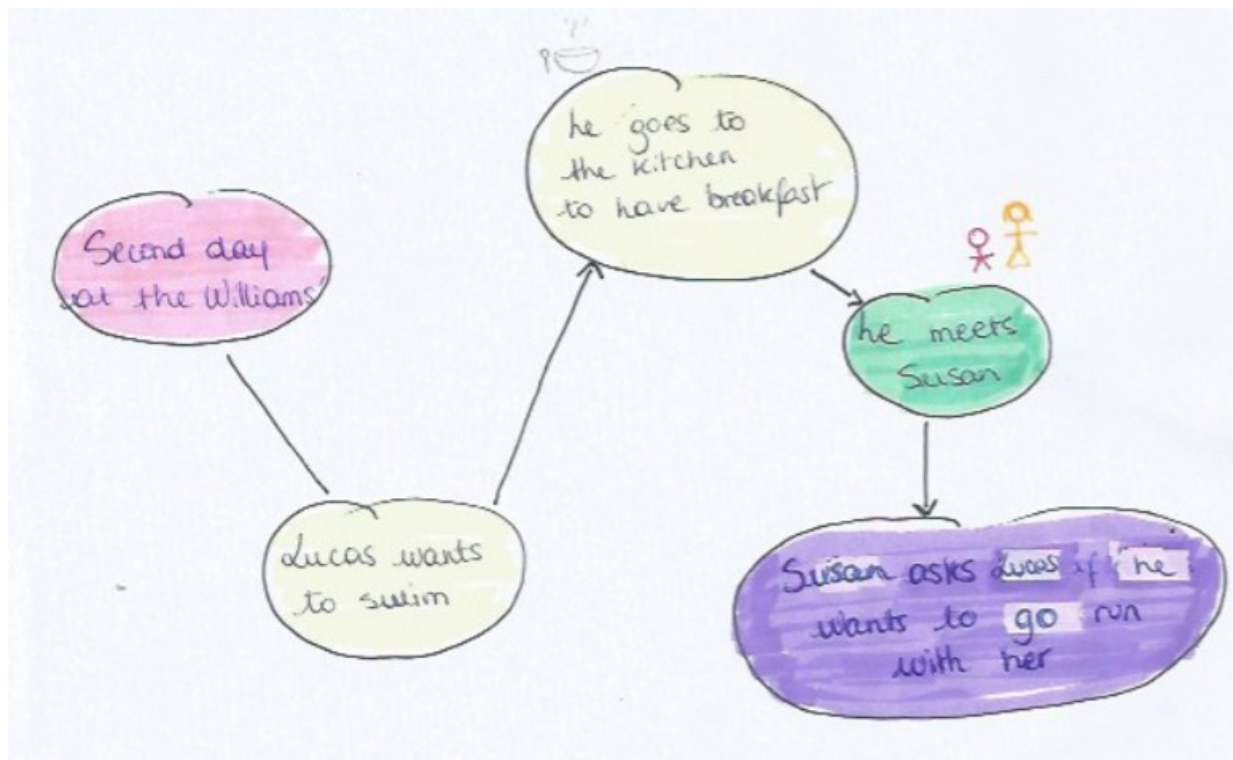 Second day
at the Williams'
Lucas wants
to swim
he goes to
the kitchen
to have breakfast
he meets
Susan
Susan asks Lucas if he
wants to go run
with her